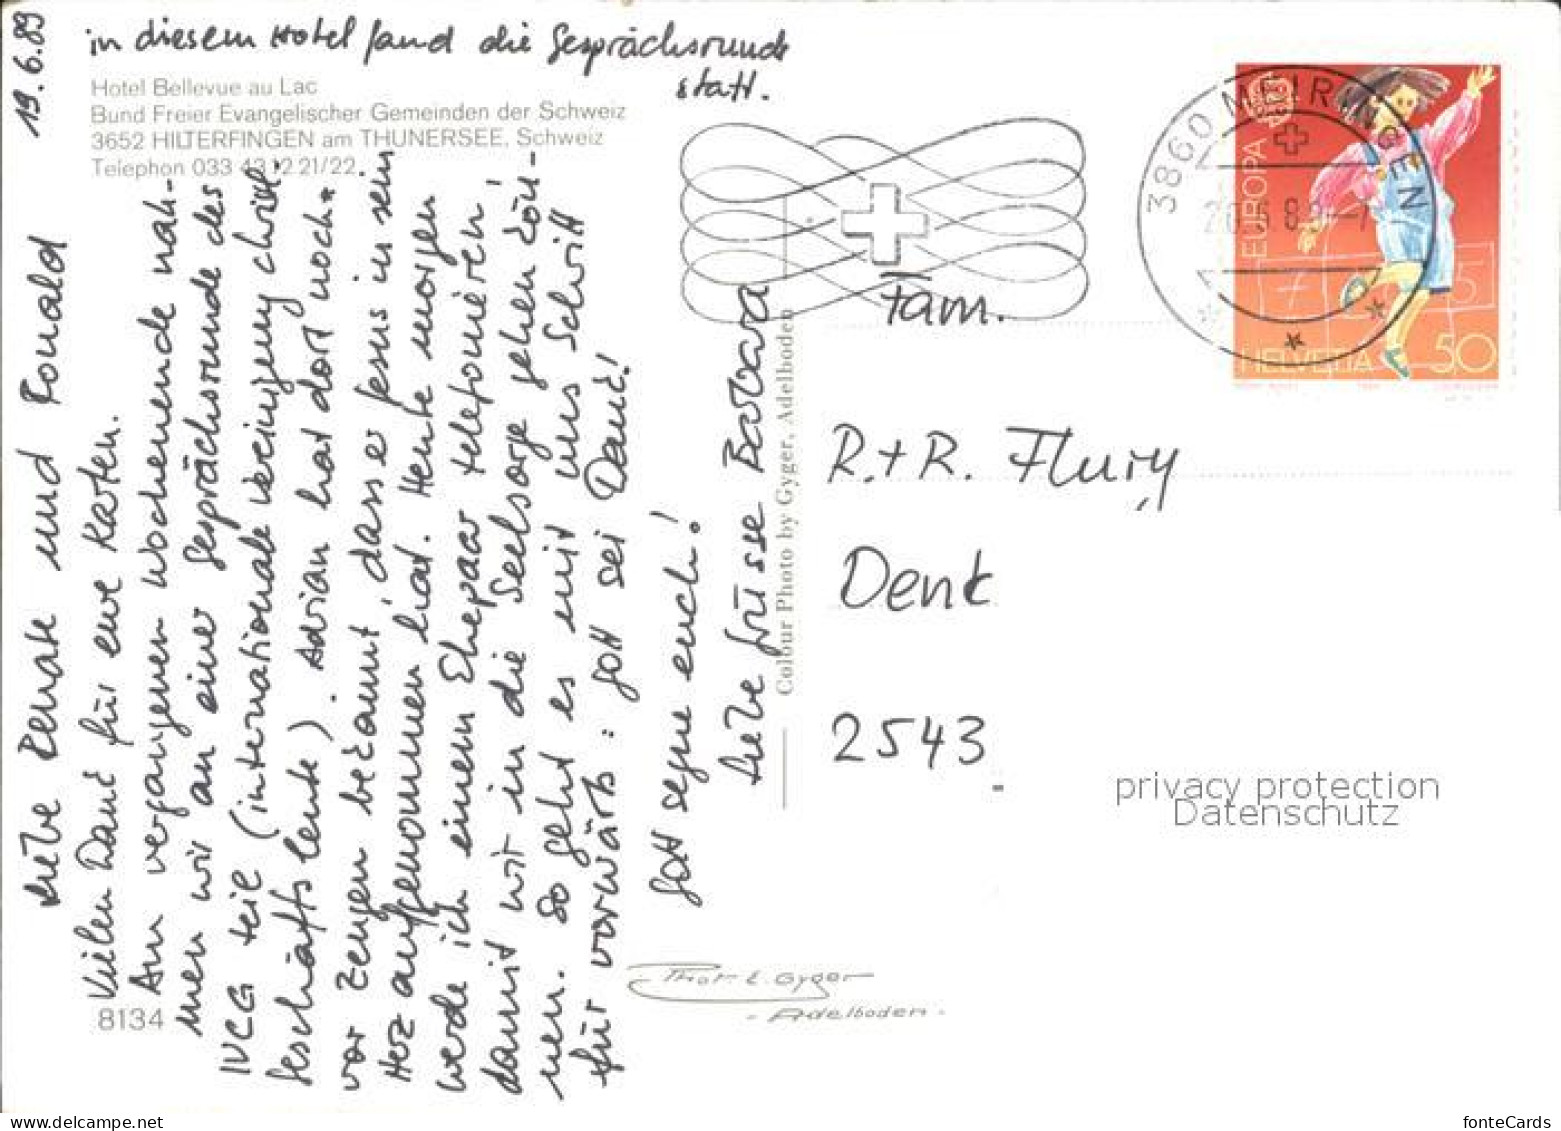 19.6.89
in diesem Hotel fand die Gesprächsrunde
statt.
Hotel Bellevue au Lac
Bund Freier Evangelischer Gemeinden der Schweiz
3652 HILTERFINGEN am THUNERSEE, Schweiz
Telephon 033 43 12 21/22
Liebe Renate und Ronald
Vielen Dank für eure Karten.
Am vergangenen Wochenende nah-
men wir an einer Gesprächsrunde des
IVCG teil (internationale Vereinigung christl.
Geschäftsleute). Adrian hat dort noch
vor Zeugen bekannt, dass er Jesus in sein
Herz aufgenommen hat. Heute morgen
werde ich einem Ehepaar telefonieren
damit wir in die Seelsorge gehen kön-
nen. So geht es mit uns Schritt
für vorwärts: Gott sei Dank!
Gott segne euch!
Liebe Grüsse Barbara
8134
Colour Photo by Gyger, Adelboden
Phot. E. Gyger
- Adelboden -
3860 MEIRINGEN
EUROPA
HELVETIA 50
Fam.
R.+R. Flury
Denk
2543
privacy protection
Datenschutz
www.delcampe.net
fonteCards